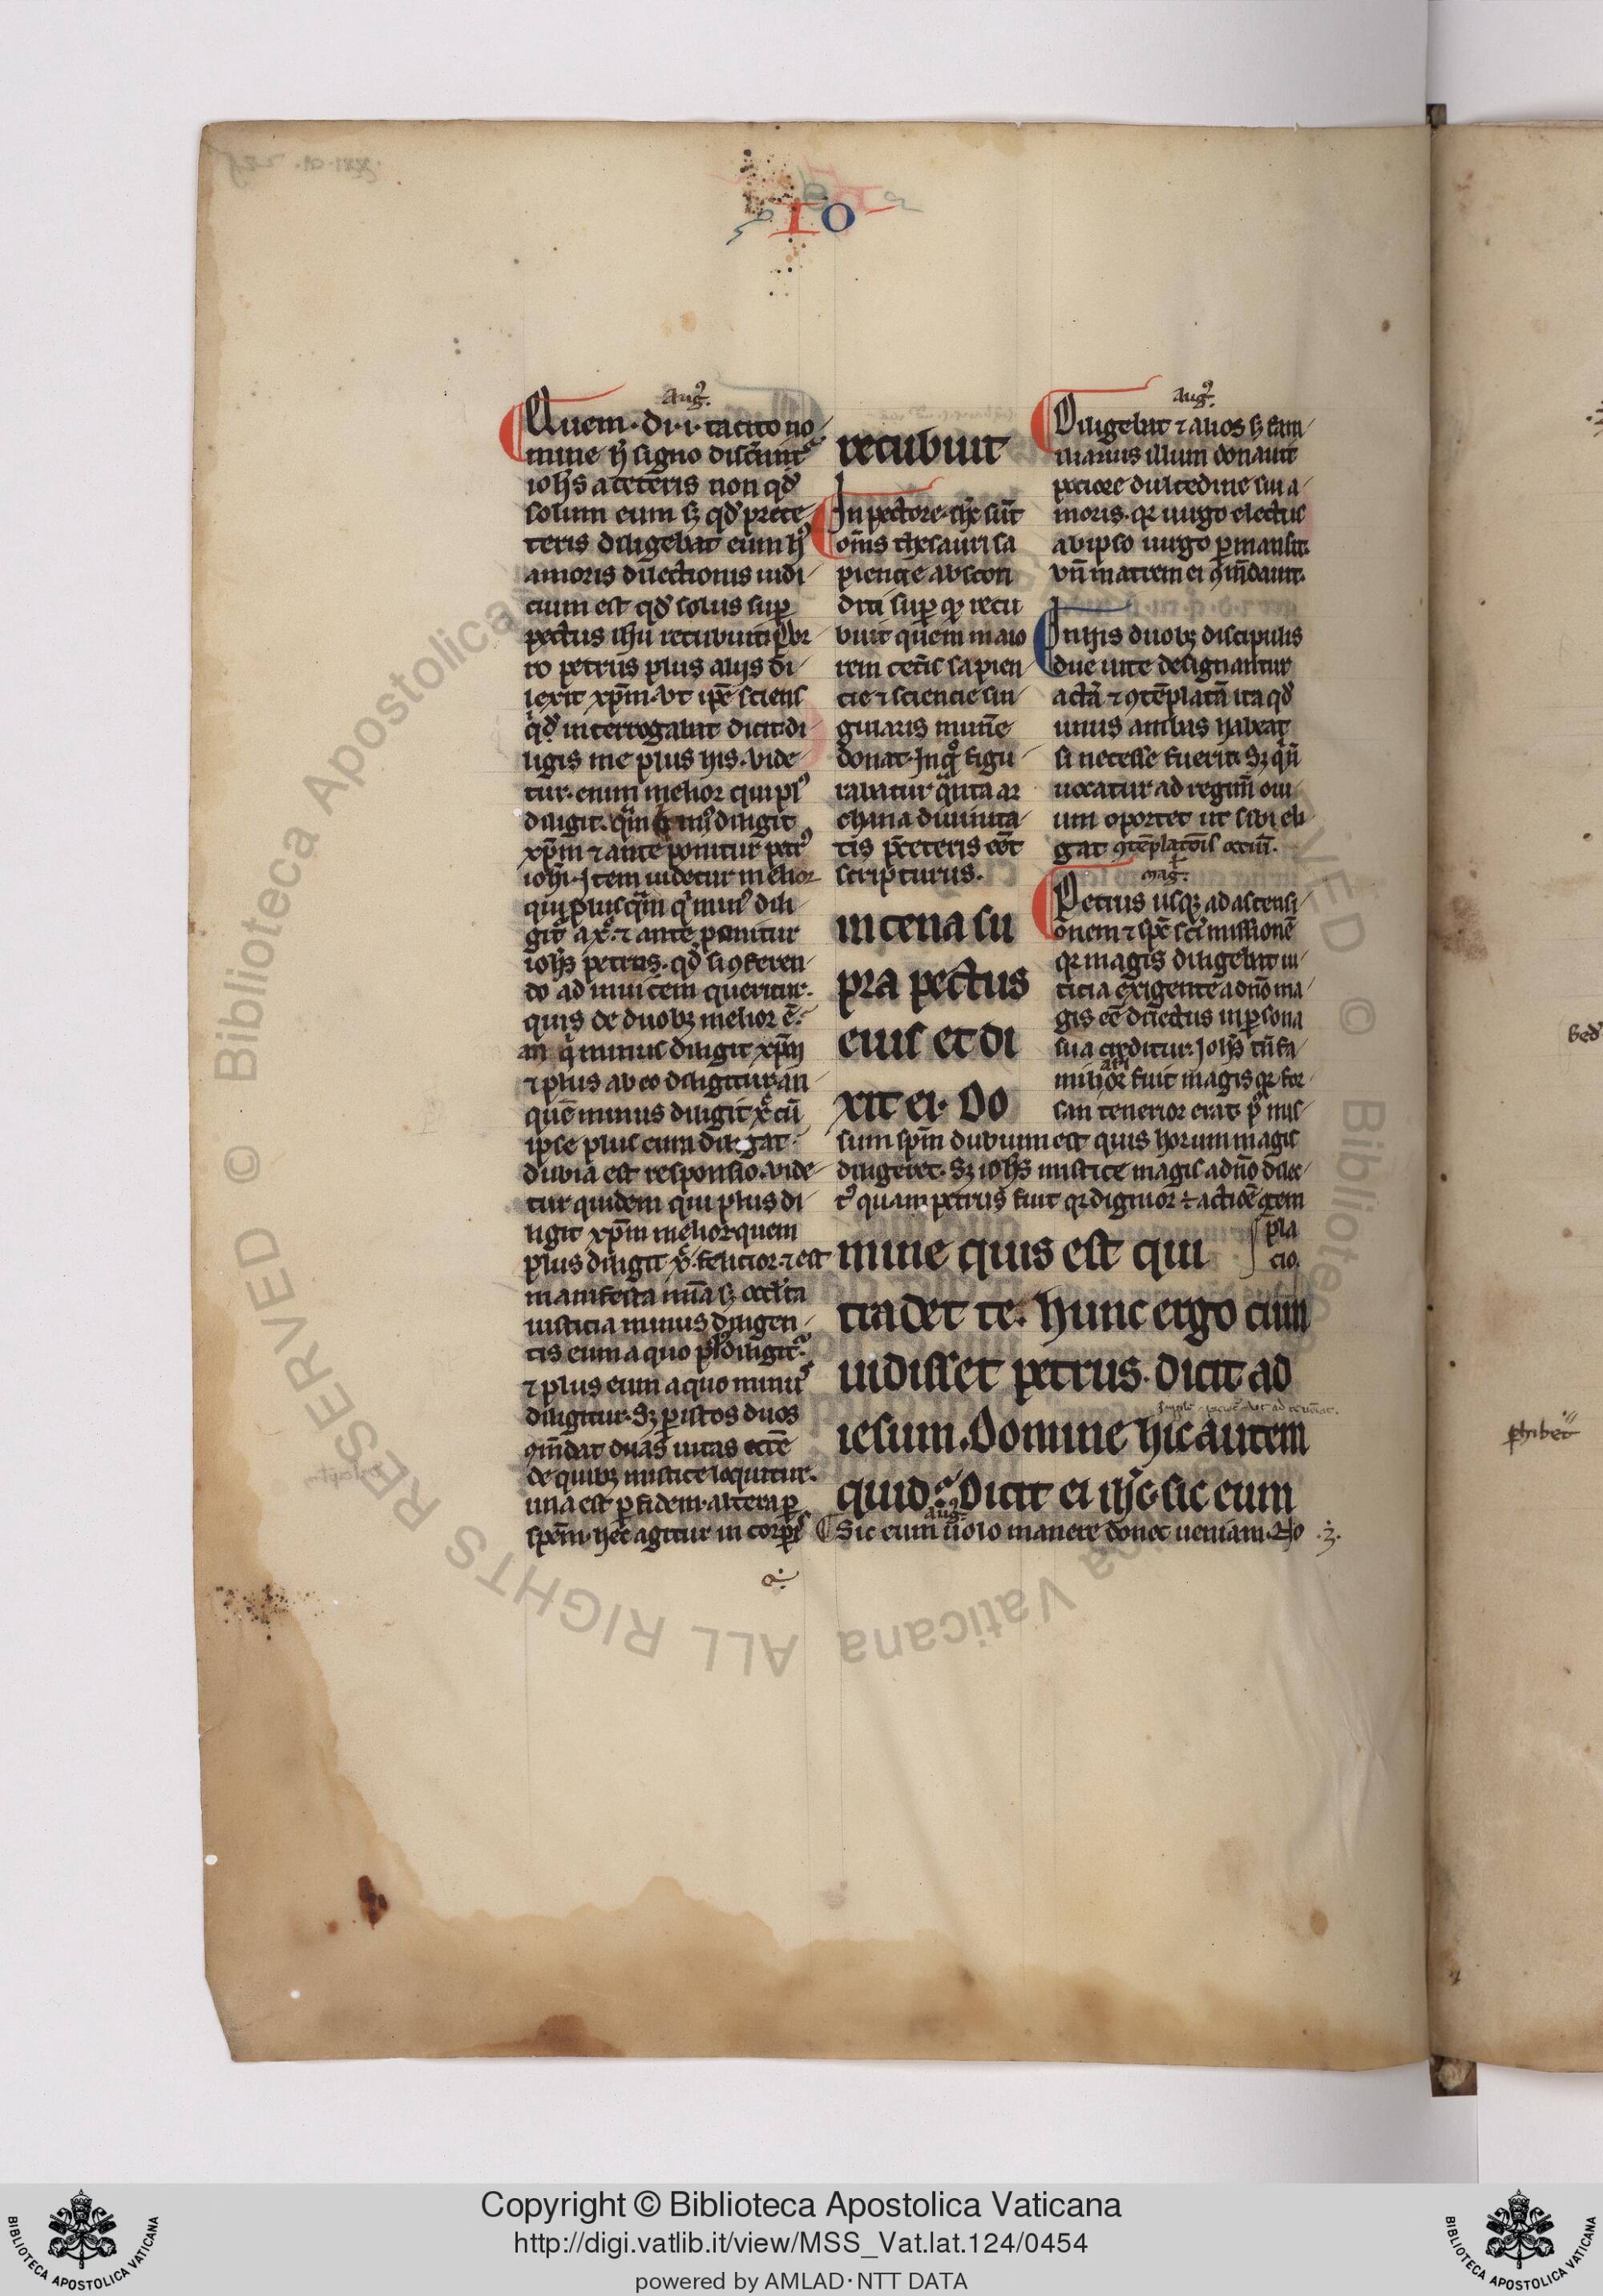 IO
Aug᷒.
Quem · di · i · tacito no
mine ħ signo discernit᷑
ioħs a ceteris non qd̕
solum eum sꝫ qd̕ p̄ ce
teris diligebat eum h᷒
amoris dilectionis indi
cium est qd̕ solus sup̱
pectus ihū recubuit. Por
ro petrus plus alijs di
lexit xp̄m. vt ip̄e sciens
qd̕ interrogabat dicit. di
ligis me plus his. vide
tur enim melior qui pl᷒
diligit. qͣm qͥ min᷒ diligit
xp̄m ⁊ ante ponitur petr᷒
ioħi. Item uidetur melior
qui plus qͣm qͥ min᷒ dili
git᷑ a xͦ. ⁊ ante ponitur
ioħs petrus. qd̕ si ꝯferen
do ad inuicem queritur.
quis de duobꝫ melior ē.
an qͥ minus diligit xp̄m
⁊ plus ab eo diligitur. an
quē minus diligit xͨ cū
ipse plus eum diligat.
dubia est responsio. vide
tur quidem qui plus di
ligit xp̄m melior quem
plus diligit xͨ. felicior. ⁊ est
manifesta mīa sꝫ occl̕ta
iusticia minus diligen
tis eum a quo pl᷒ diligit᷑
⁊ plus eum a quo minus
diligitur. Sꝫ ꝑ istos duos
ꝯm̄dat duas uitas eccl̕ē
de quibꝫ mistice loquitur.
una est ꝑ fidem. altera ꝑ
spēm. hec agitur in corpꝑe
recubuit
In pectore. chͥ sūt
om̄s thesauri sa
piencie abscon
diti sup̱ qͦ recu
buit quem maio
rem cet̕is sapien
cie ⁊ sciencie sin
gularis mun̕e
donat. In qͦ figu
rabatur qͣnta ar
chana diuinita
tis p̄ ceteris eēt
scripturus.
in cena su
pra pectus
eius et di
xit ei. Do
Aug᷒.
Diligebat ⁊ alios sꝫ fami
liarius illum donauit
pectore dulcedine sui a
moris. qꝛ uirgo electus
ab ipso uirgo ꝑmansit.
vn̄ matrem ei ꝯm̄dauit.
In hijs duobꝫ discipulis
due uite designantur
actiā ⁊ ꝯtēplatiā ita qd̕
unus ambas habeat
si necesse fuerit. Sꝫ qn̄
uocatur ad regimē oui
um oportet ut sibi eli
gat ꝯtēplatōis ocium̄.
mag᷒.
Petrus usqꝫ ad ascensi
onem ⁊ sp̄c sc̄i missionē
qꝛ magis diligebat iu
sticia exigente a dn̄o ma
gis eē dilectus in ꝑsona
sua creditur. Ioħs tn̄ fa
miliarior fuit magis qꝛ for
san tenerior erat. pͦ mis
sum sp̄m dubium est quis horum magis
diligeret. Sꝫ ioħs mistice magis a dn̄o dilec
t᷒ quam petrus fuit qꝛ dignior ⁊ actiōe ꝯtem
pla
cio.
mine quis est qui
tradet te. hunc ergo cum
uidisset petrus. dicit ad
iesum. Domine hic autem
quid? Dicit ei ihͨ. sic eum
aug᷒.
Sic eum uolo manere donec ueniam. No
Copyright © Biblioteca Apostolica Vaticana
http://digi.vatlib.it/view/MSS_Vat.lat.124/0454
powered by AMLAD·NTT DATA